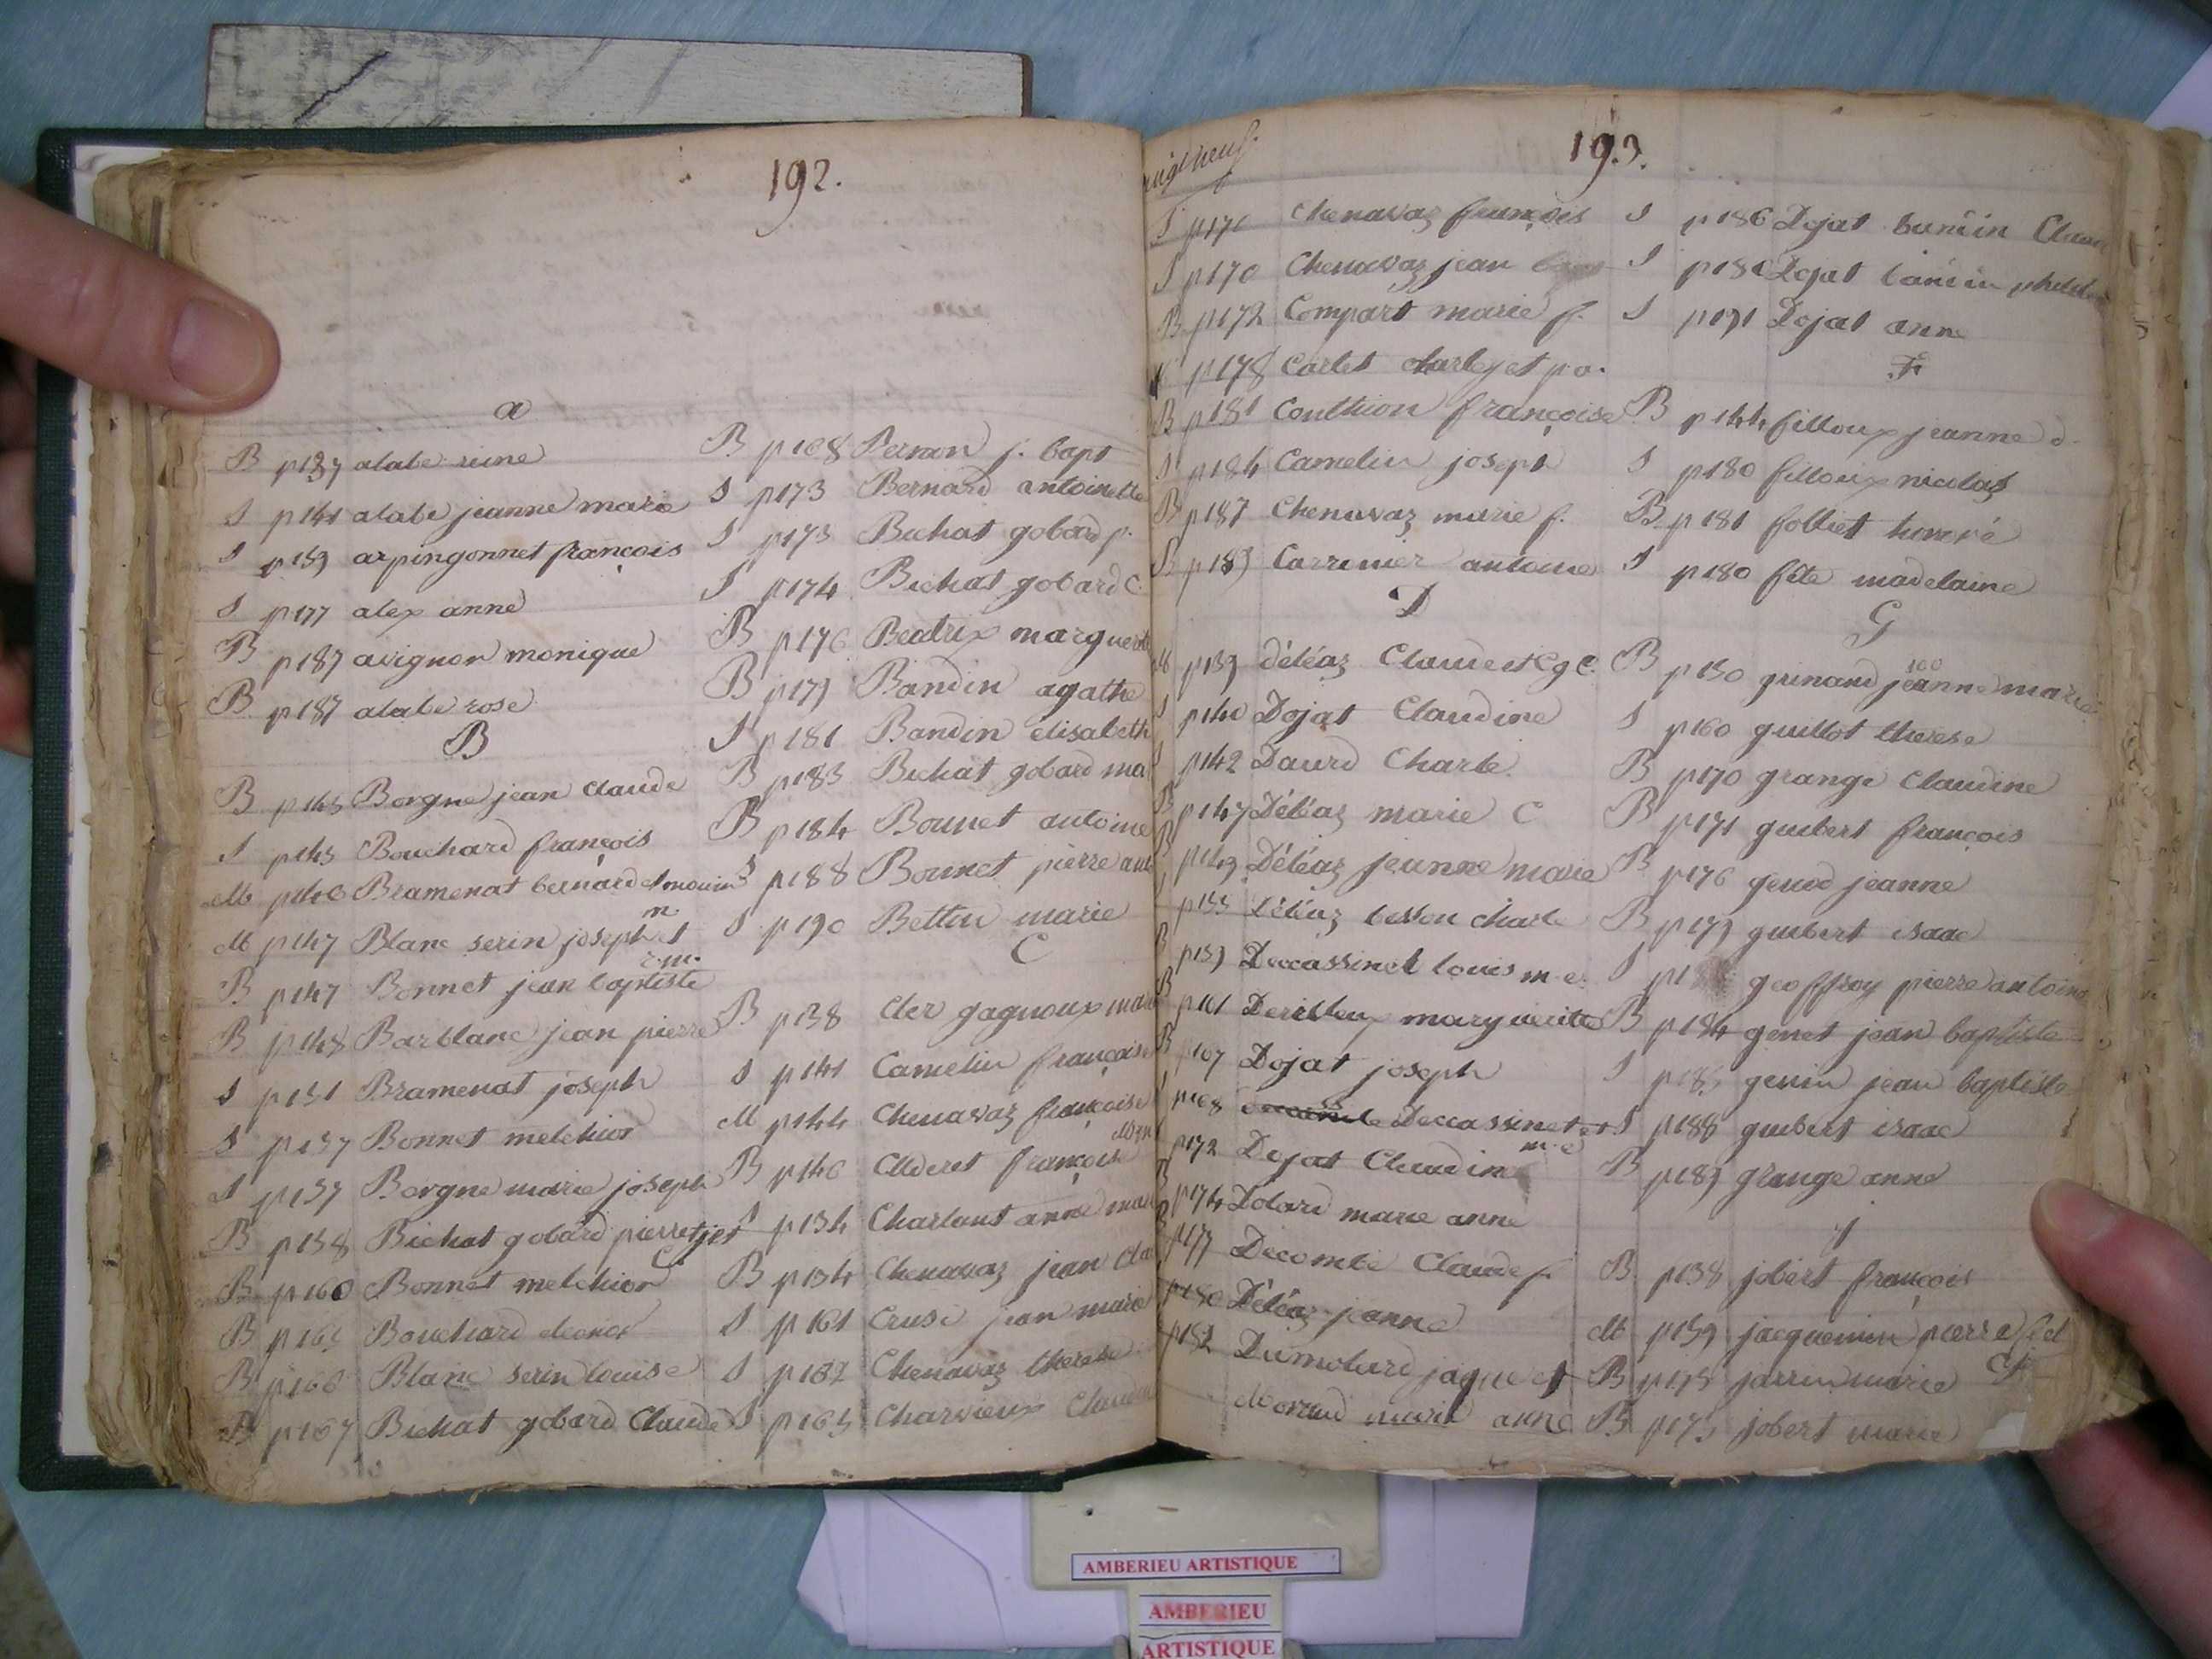 192.
a
B p137 alabe reine
S p141 alabe jeanne marie
S p159 arpingonnet françois
S p177 alex anne
B p187 avignon monique
B p187 alabe rose
B
B p145 Borgne jean claude
S p145 Bouchard françois
M p146 Bramenat bernard et
M p147 Blanc serin joseph et
m
r.m.
B p147 Bonnet jean baptiste
B p148 Barblanc jean pierre
S p151 Bramenat joseph
S p157 Bonnet melchior
S p157 Borgne marie joseph
B p158 Bichat gobard pierre
B p160 Bonnet melchior
B Bouchard
B p166 Blanc serin louise
B p167 Bichat gobard Claude
B p168 j. bapt
S p173 Bernard antoinette
S p173 Bichat gobard
S p174 Bichat gobard C.
B p176 Beatrix marguerite
B p179 Bandin agathe
S p181 Bandin elisabeth
B p183 Bichat gobard ma
B p184 Bonnet antoine
S p188 Bonnet pierre
S p190 Bettin marie
C
B p138 Cler gagnoux
S p141 Camelin françoise
M p144 Chenavaz françoise
B p146 françoise
S p154 Charlaut anne
B p154 Chenavaz jean
S p161 Cruse jean marie
S p162 Chenavaz therese
S p165 Charvieux
193.
S p170 Chenavaz françois
S p170 Chenavaz jean
B p172 Compart marie f.
p178 Carlet
B p181 Couthion françoise
S p184 Camelin joseph
B p187 Chenavaz marie f.
B p189 Carrenier antoine
D
M p139 déléaz Claude et
S p140 Dojat Claudine
p142 Daurd Charle
B p147 Déléaz marie C
p149 Déléaz jeanne marie
p155 Déléaz besson charle
p159 Deccassinet louis m.c.
p161 marguerite
p167 Dojat joseph
p168 Deccassinet et
m.c
p172 Dojat Claudine
p174 Dolard marie anne
p177 Decombe Claude f.
p180 Déléaz jeanne
p182 Dumolard jaque et
Morand marie anne
S p186 Dojat
S Dojat
S p191 Dojat anne
F
B p144 filloux jeanne d.
S p180 filloux nicolas
B p181 folliet honoré
S p180 fête madelaine
G
B p150 grinand jeanne marie
S p160 guillot therese
B p170 grange Claudine
B p171 guibert françois
B p176 genod jeanne
B p179 guibert isaac
S geoffroy pierre antoine
B p184 genet jean baptiste
S jean baptiste
S p188 guibert isaac
B p189 grange anne
j
B p138 jobert françois
M p159 jacquemin pierre
B p175 jarrin marie
B p175 jobert marie
AMBERIEU ARTISTIQUE
AMBERIEU
ARTISTIQUE